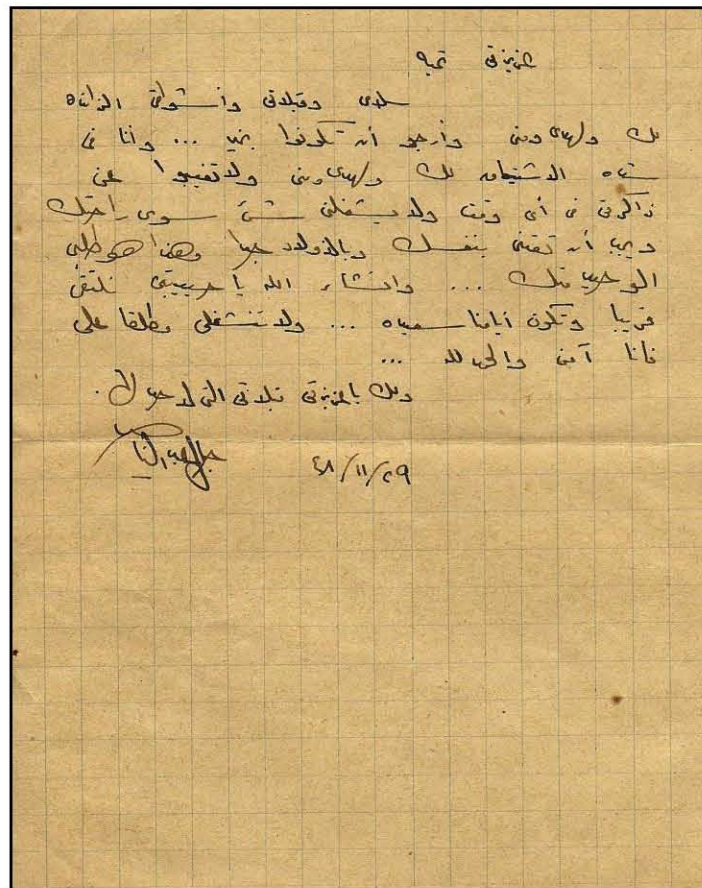 عزيزتى تحيه
سلامى وقبلاتى وأشواقى الزائده
لك ولهدى ومنى وأرجو أن تكونوا بخير ... وأنا فى
شده الاشتياق لك ولهدى ومنى ولا تغيبوا عن
ذاكرتى فى أى وقت ولا يشغلنى شئ سوى راحتك
ويجب أن تعتنى بنفسك وبالأولاد جيدا وهذا هو طلبى
الوحيد منك ... وانشاء الله يا حبيبتى نلتقى
قريبا وتكون أيامنا سعيده ... ولا تنشغلى مطلقا على
فأنا آمن والحمد لله ...
ولك يا عزيزتى قبلاتى التى لا حد لها.
جمال عبد الناصر
٢٩/١١/٤٨